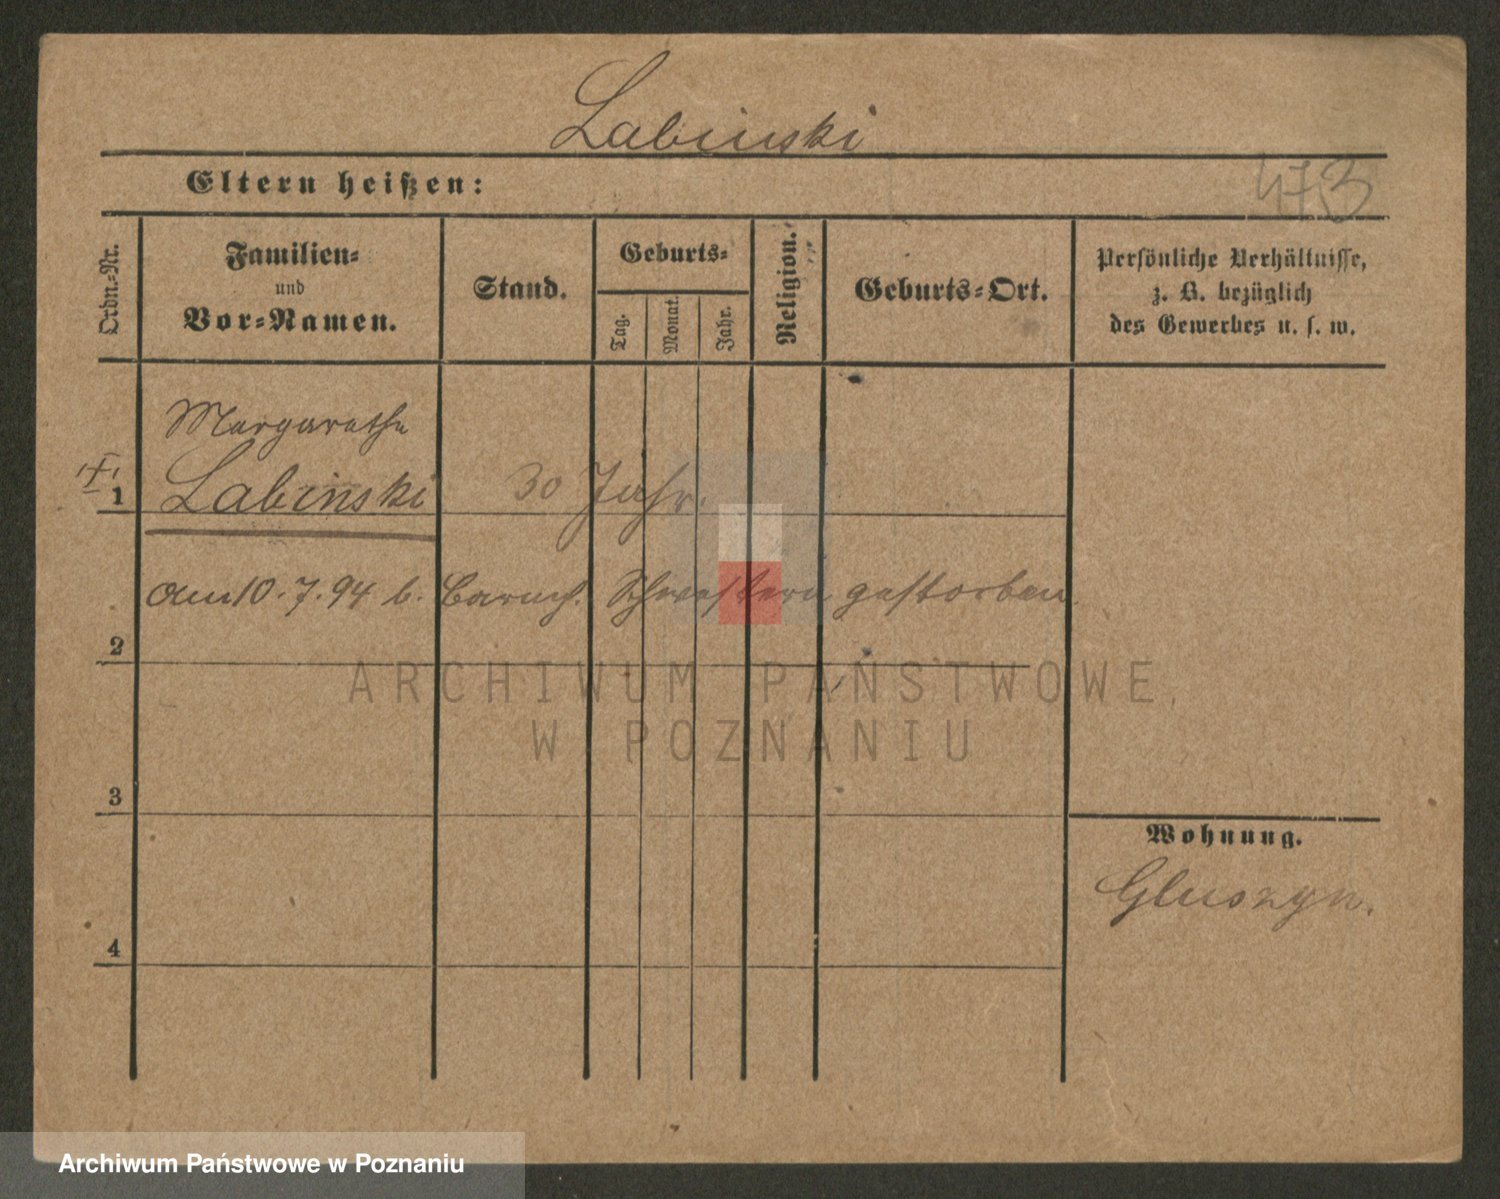 Labinski
Eltern heißen:
473
Ordn.-Nr.
Familien-
und
Vor-Namen.
Stand.
Geburts-
Tag.
Monat.
Jahr.
Religion.
Geburts-Ort.
Persönliche Verhältnisse,
z. B. bezüglich
des Gewerbes u. s. w.
Margarethe
1
Labinski
30 Jahr.
am 10. 7. 94 b. Barmh. Schwestern gestorben.
2
ARCHIWUM PAŃSTWOWE
W POZNANIU
3
Wohnung.
Gluszyn.
4
Archiwum Państwowe w Poznaniu